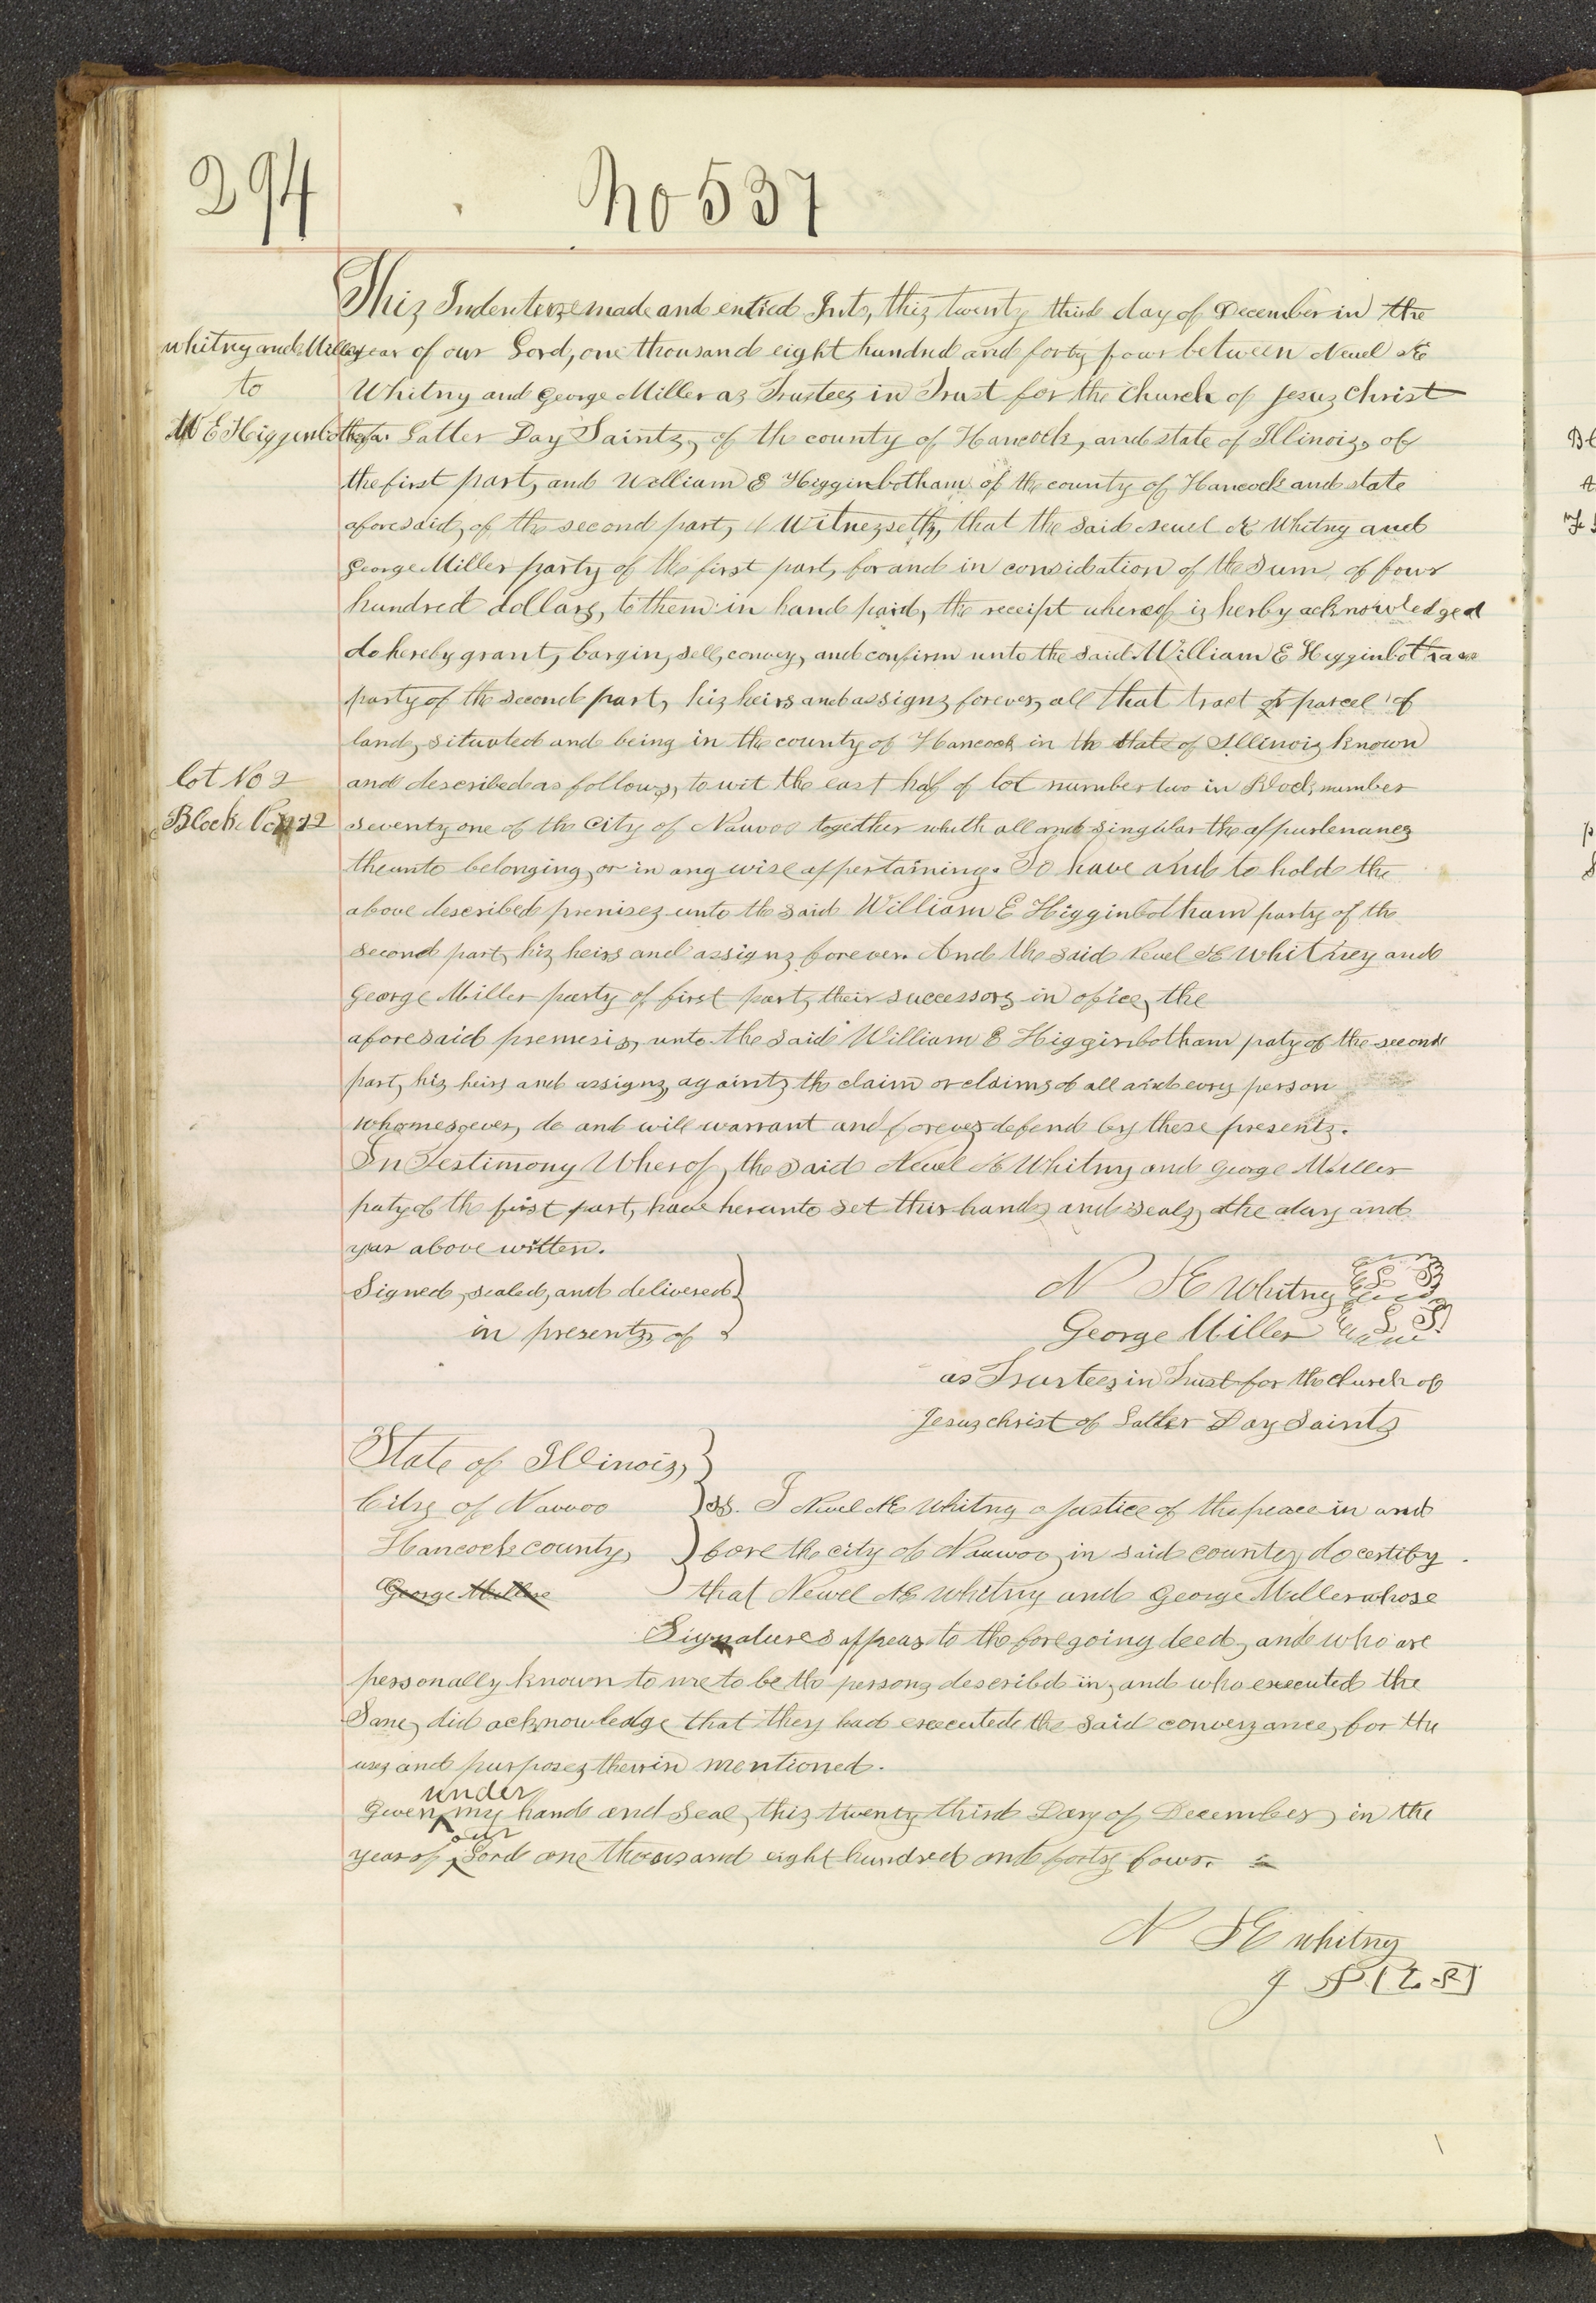 294
No 537
This Indenture made and entred Into, this twenty third day of December in the
Whitny and Miller
year of our Lord, one thousand eight hundred and forty four between Newel K
to
Whitny and George Miller as Trustees in Trust for the Church of Jesus Christ
W E Higginbotham
of Latter Day Saints, of the county of Hancock, and state of Illinois, of
the first part, and William E Higginbotham of the county of Hancock and state
aforesaid, of the second part, Witnesseth, that the said Newel K Whitny and
George Miller party of the first part, for and in considration of the Sum, of four
hundred dollars, to them in hand paid, the receipt whereof is herby acknowledged
do hereby grant, bargin, sell, convey, and confirm unto the said William E Higginbotham
party of the second part, his heirs and assigns forever, all that tract or parcel of
land, situated and being in the county of Hancock in th State of Illinois known
lot No 2
and described as follows, to wit the east half of lot number two in Block number
Block
seventy one of the City of Nauvoo together whith all and singular the appurtenances
theunto belonging, or in any wise appertaining. To have and to hold the
above described premises unto the said William E Higginbotham party of the
second part, his heirs and assigns forever. And the said Newel K Whitney and
George Miller party of first part, their successors in ofice, the
aforesaid premesis, unto the said William E Higginbotham paty of the second
part, his heirs and assigns, against the claim or claims of all and every person
whomesoever, do and will warrant and forever defend by these presents.
In Testimony Wherof, the said Newel K Whitny and George Miller
paty of the first part, have herunto set their hands and seals, the day and
year above written.
Signed, sealed, and delivered
in presents of
N K Whitny L S
George Miller L S
as Trustees in Trust for the church of
Jesus christ of Latter Day Saints
State of Illinois,
City of Nauvoo
ss. I Newel K Whitny a justice of the peace in and
Hancock county,
fore the city of Nauvoo, in said county, do certify
George Miller
that Newel K Whitny and George Miller whose
Signatures appear to the foregoing deed, and who are
personally known to me to be the persons described in, and who executed the
Same, did acknowledge that they had executed the said conveyance, for the
uses and purposes therin mentioned.
under
Given my hand and Seal, this twenty third Day of December, in the
our
year of Lord one thousand eight hundred and forty four.
N K Whitny
J P [L S]